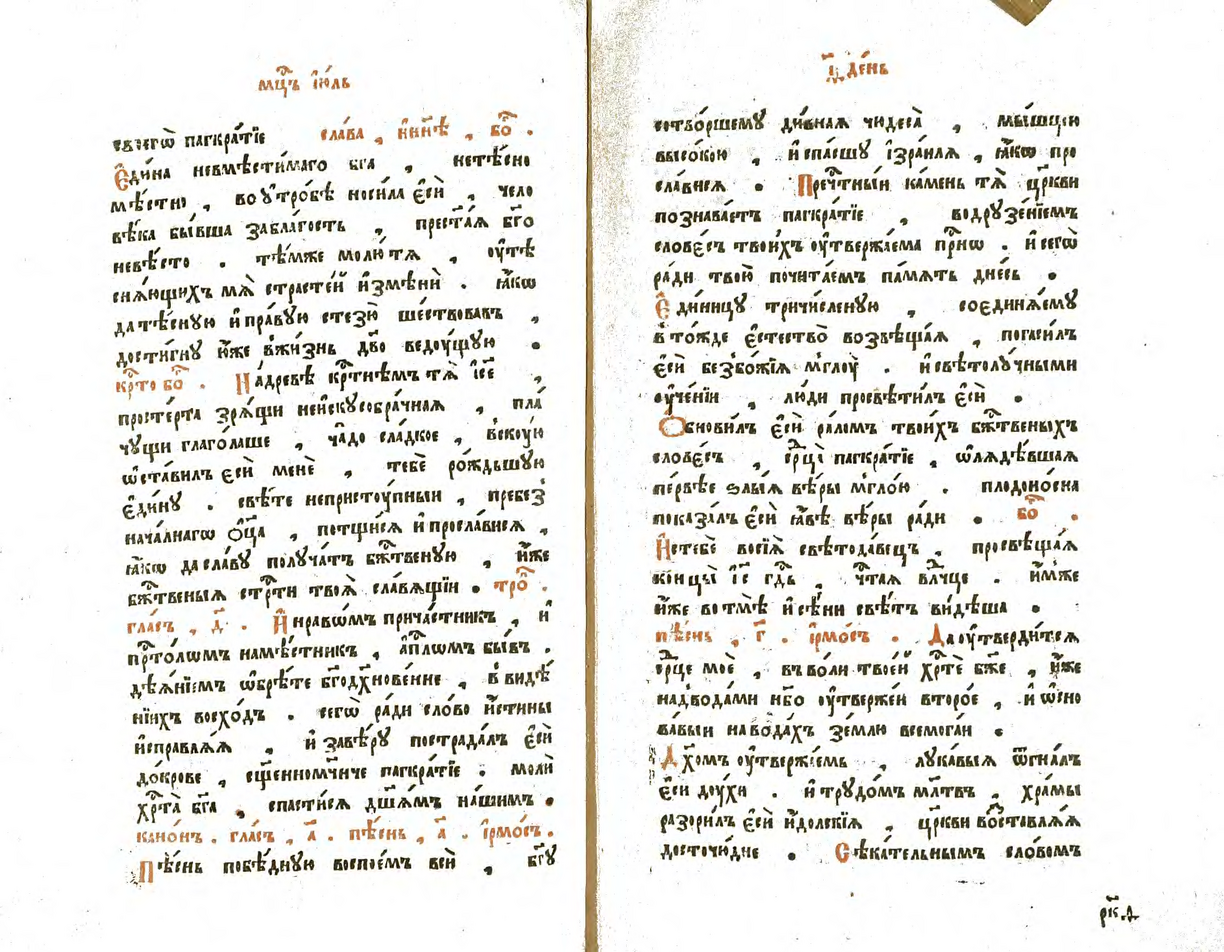 мц҃ъ і҆ю́ль
своегѡ̀ панкра́тїе сла́ва , и҆ны́нѣ , бо̑ .
Є҆ди́на невмѣсти́маго бг҃а , нетѣ́сно
мѣ́стнѡ , воу҆тро́бѣ носи́ла є҆сѝ , чело
вѣ́ка бы́вша заблагость , прест҃а́ѧ бг҃о
невѣ́сто . тѣ́мже молю́ тѧ , оу҆тѣ
снѧ́ющихъ мѧ̀ страсте́й и҆змѣнѝ . ꙗ҆́кѡ
датѣ́сную и҆пра́вую стезю̀ ше́ствовавъ ,
дости́гну и҆́же вжи́знь дв҃о веду́щую .
кр҃то бо̑ . На́древѣ кр҃тнѣмъ тѧ̀ і҆с҃е ,
просте́рта зрѧ́щи неискусобра́чнаѧ , пла́
чущи глаго́лаше , ча́до сла́дкое , вску́ю
ѡ҆ста́вилъ є҆сѝ менѐ , тебѐ ро́ждьшую
є҆ди́ну . свѣ́те непристу́пныи , пребез
нача́лнагѡ ѻ҆ц҃а̀ , потщи́сѧ и҆просла́висѧ ,
ꙗ҆́кѡ да сла́ву полу́чатъ бж҃твеную , и҆́же
бж҃твеныѧ стр҃ти твоѧ̀ сла́вѧщїи . тро̑ .
гла́съ , д҃ . И҆ нра́вѡмъ прича́стникъ , и҆
пр҃то́лѡмъ намѣ́стникъ , а҆п҃лѡмъ бы́въ .
дѣѧ́нїемъ ѡ҆брѣ́те бг҃одх҃нове́нне , в видѣ́
нїихъ восхо́дъ . сегѡ̀ ра́ди сло́во и҆́стины
и҆справлѧ́ѧ , и҆ завѣ́ру пострада́лъ є҆сѝ
до́крове , сщ҃енномч҃ниче панкра́тїе . молѝ
хр҃та̀ бг҃а , спасти́сѧ дш҃а́мъ на́шимъ .
кано́нъ . гла́съ , а҃ . пѣ́снь , а҃ . і҆рмо́съ .
Пѣ́снь побѣ́дную воспое́мъ всѝ , бг҃у
д҃і де́нь
сотво́ршему ди́внаѧ чюдеса̀ , мы́шцею
высо́кою , и҆спа́сшу і҆зра́илѧ , ꙗ҆́кѡ про
сла́висѧ . Пречт҃ныи ка́мень тѧ̀ цр҃кви
познава́етъ панкра́тїе , водруже́нїемъ
слове́съ твои́хъ оу҆твержа́ема при́снѡ . и҆сегѡ̀
ра́ди твою̀ почита́емъ па́мѧть дне́сь .
Є҆ди́ницу тричи́сленую , соединѧ́ему
вто́жде є҆стество̀ возвѣща́ѧ , погаси́лъ
є҆сѝ безбо́жїѧ мглу̀ . и҆свѣтолу́чными
оу҆че́нїи , лю́ди просвѣти́лъ є҆сѝ .
Ѻ҆бнови́лъ є҆сѝ ра́ломъ твои́хъ бж҃твеныхъ
слове́съ , ср҃цы̀ панкра́тїе , ѡ҆лѧдѣ́вшаѧ
пе́рвѣе ѕлы́ѧ вѣ́ры мгло́ю . плодоно́сна
показа́лъ є҆сѝ ꙗ҆́вѣ вѣ́ры ра́ди . бо̑ .
И҆стебѐ восїѧ̀ свѣтода́вецъ , просвѣща́ѧ
концы̀ і҆с҃ гд҃ь , чт҃аѧ влч҃це . и҆́мже
и҆́же во тмѣ̀ и҆сѣ́ни свѣ́тъ ви́дѣша .
пѣ́снь , г҃ . і҆рмо́съ . Да оу҆тверди́тсѧ
ср҃це моѐ , въ во́ли твое́й хр҃тѐ бж҃е , и҆́же
надвода́ми нб҃о оу҆тверже́й второ́е , и҆ ѡ҆сно
ва́выи навода́хъ зе́млю всемога́и .
Дх҃омъ оу҆твержа́емь , лука́выѧ ѿгна́лъ
є҆сѝ ду́хи . и҆трудо́мъ мл҃твъ , хра́мы
разори́лъ є҆сѝ и҆́долскїѧ , цр҃кви востовлѧ́ѧ
досточю́дне . Сѣка́тельнымъ сло́вомъ
рк҃д